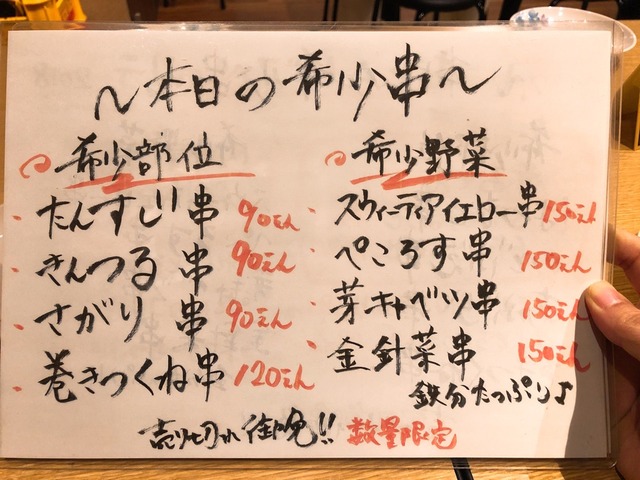 〜本日の希少串〜
希少部位
たんすじ串 90えん
きんつる串 90えん
さがり串 90えん
巻きつくね串 120えん
希少野菜
スウィーティアイエロー串 150えん
ぺころす串 150えん
芽キャベツ串 150えん
金針菜串 150えん
鉄分たっぷり♪
売り切れ御免!! 数量限定